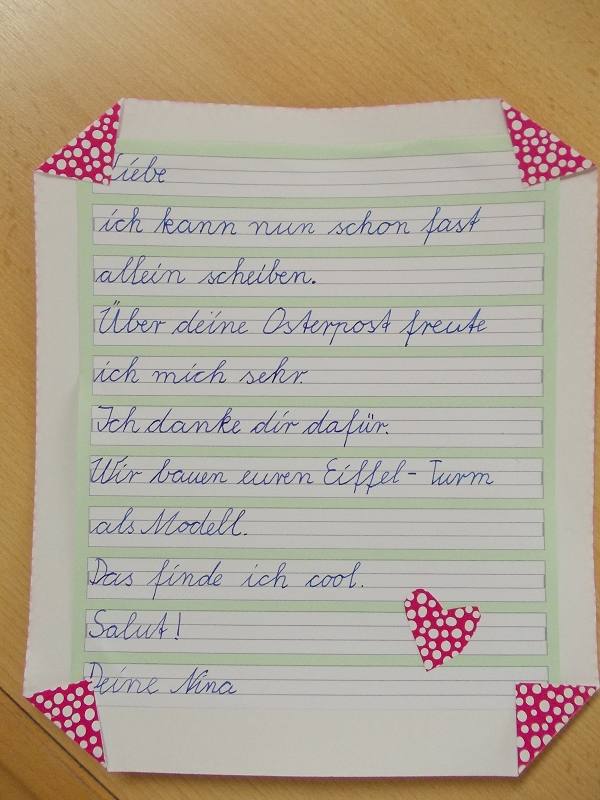 Liebe
ich kann nun schon fast
allein scheiben.
Über deine Osterpost freute
ich mich sehr.
Ich danke dir dafür.
Wir bauen euren Eiffel-Turm
als Modell.
Das finde ich cool.
Salut!
Deine Nina